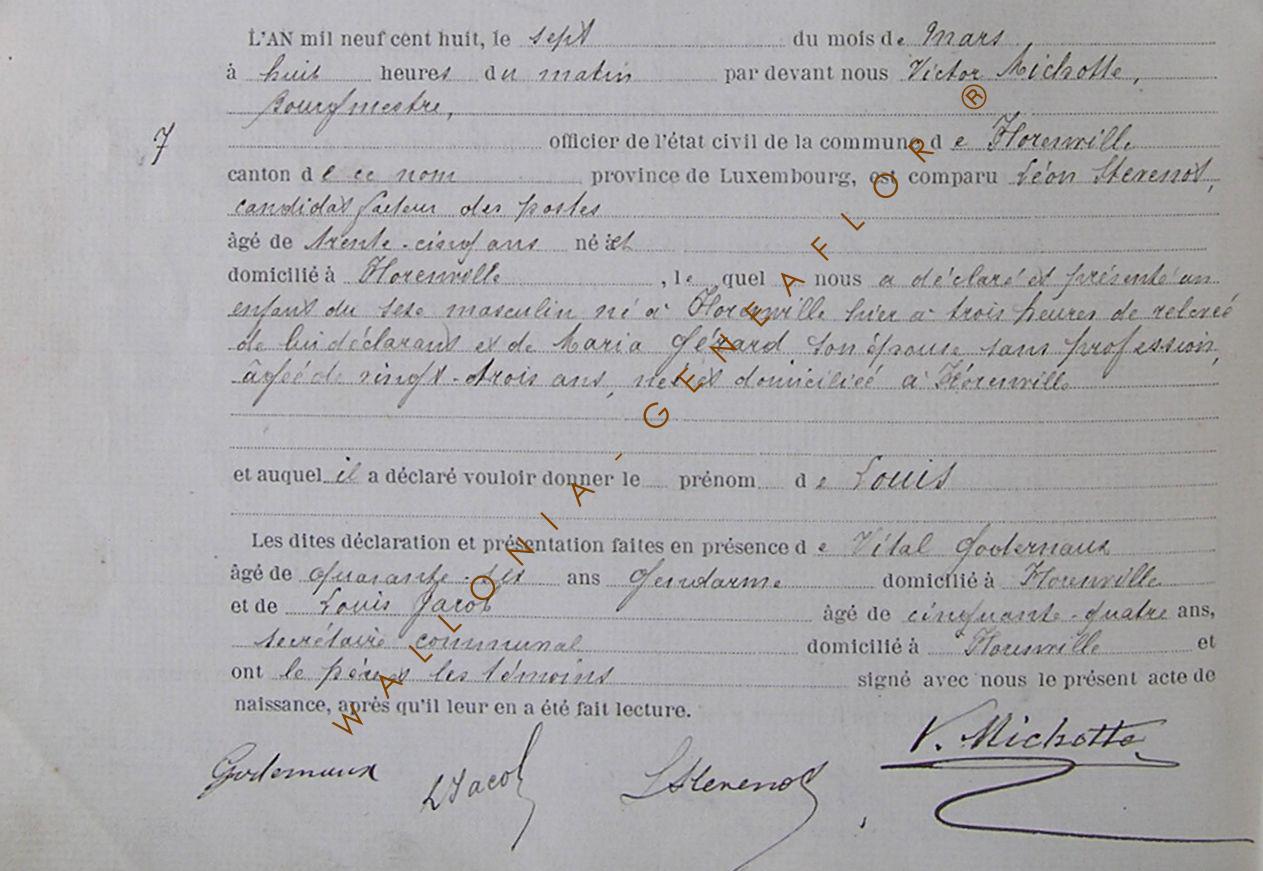 L'AN mil neuf cent huit, le sept du mois de Mars
à huit heures du matin par devant nous Victor Michotte,
Bourgmestre,
7 officier de l'état civil de la commune de Florenville
canton de ce nom province de Luxembourg, est comparu Léon Stevenot,
candidat facteur des postes
âgé de trente-cinq ans né et
domicilié à Florenville, lequel nous a déclaré et présenté un
enfant du sexe masculin né à Florenville hier à trois heures de relevée
de lui déclarant et de Maria Gérard son épouse, sans profession,
âgée de vingt-trois ans, née et domiciliée à Florenville
et auquel il a déclaré vouloir donner le prénom de Louis
Les dites déclaration et présentation faites en présence de Vital Godernaux
âgé de quarante-six ans Gendarme domicilié à Florenville
et de Louis Jacob âgé de cinquante-quatre ans,
secrétaire communal domicilié à Florenville et
ont le père et les témoins signé avec nous le présent acte de
naissance, après qu'il leur en a été fait lecture.
Godernaux LJacob LStevenot V. Michotte
WALLONIA-GENEAFLOR ®